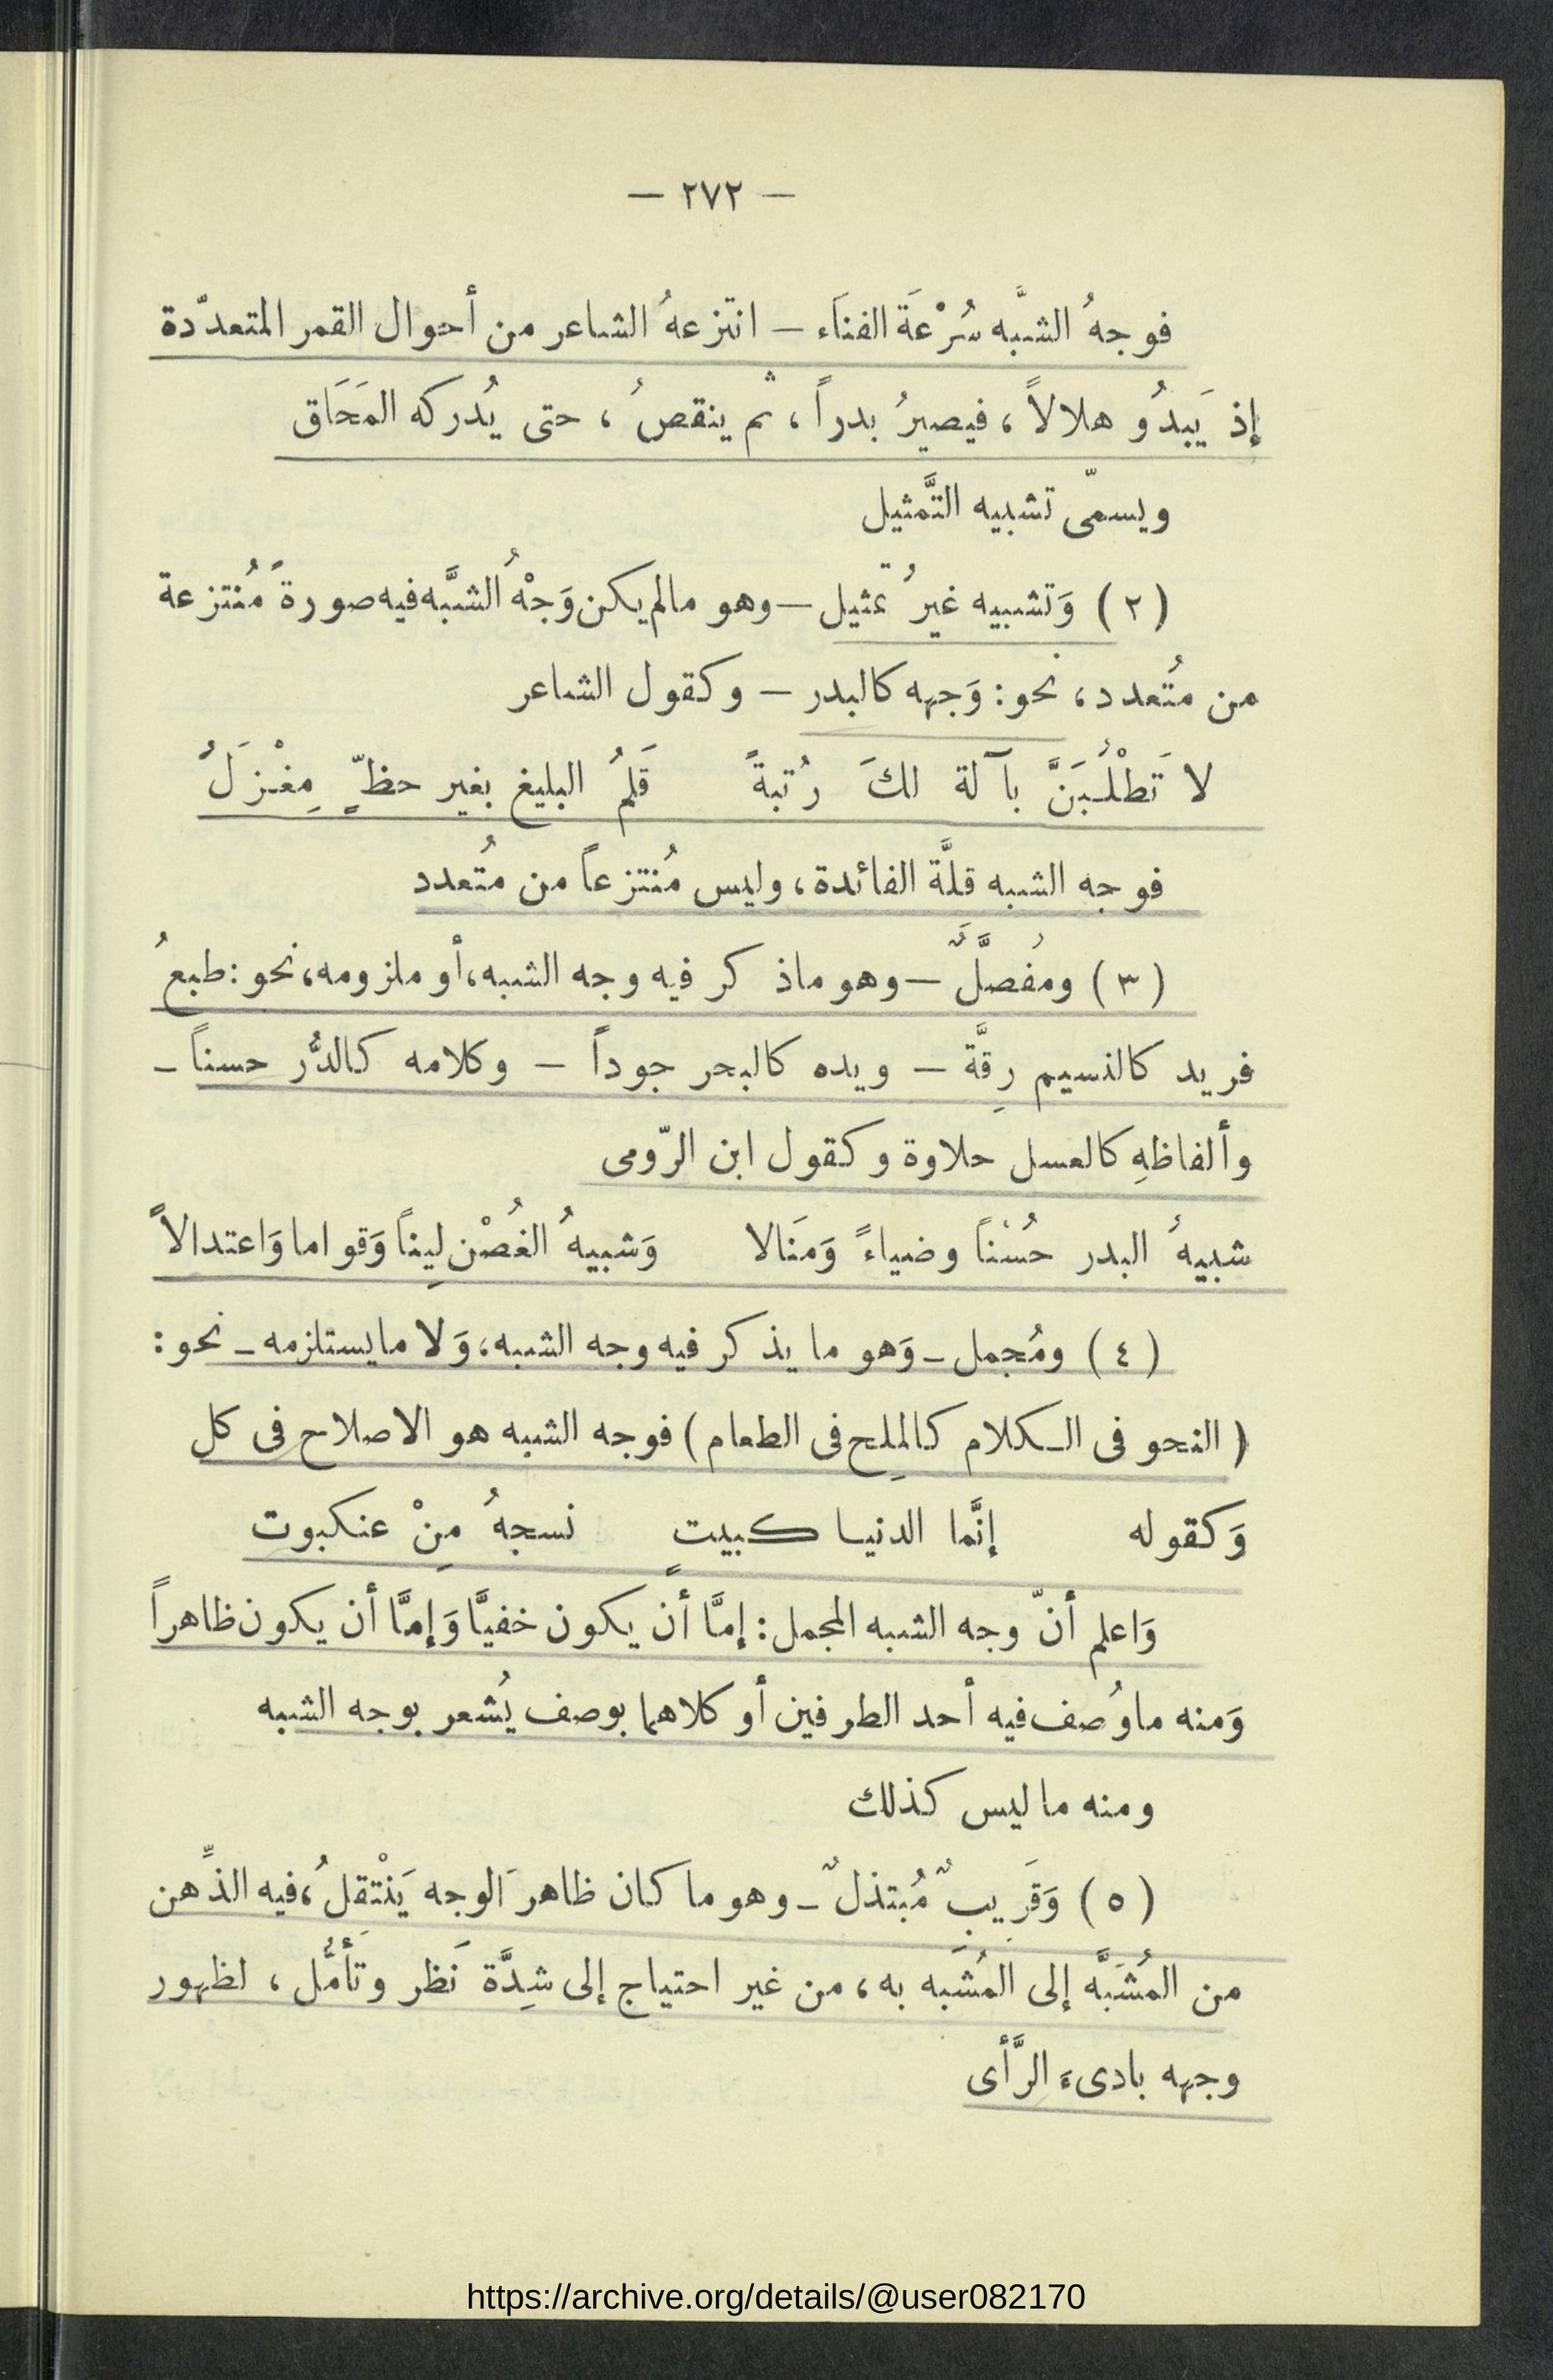 — ٢٧٢ —
فوجهُ الشبَّه سُرْعَة الفنَاء – انتزعهُ الشاعر من أحوال القمر المتعدّدة
إذ يَبدُو هلالاً ، فيصيرُ بدراً ، ثم ينقصُ ، حتى يُدركه المَحَاق
ويسمّى تشبيه التَّمثيل
(٢) وَتشبيه غيرُ تمثيل – وهو مالم يكن وَجْهُ الشبَّه فيه صورةً مُنتزعة
من مُتعدد ، نحو : وَجهه كالبدر – وكقول الشاعر
لا تَطْلُبَنَّ بآلة لكَ رُتبةً قَلمُ البليغ بغير حظّ مِغْزَلُ
فوجه الشبه قلَّة الفائدة ، وليس مُنتزعاً من مُتعدد
(٣) ومُفصَّلٌ – وهو ماذكر فيه وجه الشبه ، أو ملزومه ، نحو : طبعُ
فريد كالنسيم رِقَّة – ويده كالبحر جوداً – وكلامه كالدُّر حسناً –
وألفاظهِ كالعسل حلاوة وكقول ابن الرّومى
شبيهُ البدر حُسْناً وضياءً وَمَنَالا وَشبيهُ الغُصْن لِيناً وَقواما وَاعتدالاً
(٤) ومُجمل – وَهو ما يذكر فيه وجه الشبه ، وَلا مايستلزمه – نحو :
( النحو فى الـكلام كالمِلح فى الطعام ) فوجه الشبه هو الاصلاح فى كل
وَكقوله إنَّما الدنيـا كبيتٍ نسجهُ مِنْ عنكبوت
وَاعلم أنّ وجه الشبه المجمل : إمَّا أن يكون خفيًّا وَإمَّا أن يكون ظاهراً
وَمنه ماوُصف فيه أحد الطرفين أو كلاهما بوصف يُشعر بوجه الشبه
ومنه ماليس كذلك
(٥) وَقَرِيبٌ مُبتذلٌ – وهو ما كان ظاهرَ الوجه يَنْتَقلُ ، فيه الذِّهن
من المُشَبَّه إلى المُشَبَه به ، من غير احتياج إلى شِدَّة نَظر وتَأمُّل ، لظهور
وجهه بادىءَ الرَّأى
https://archive.org/details/@user082170